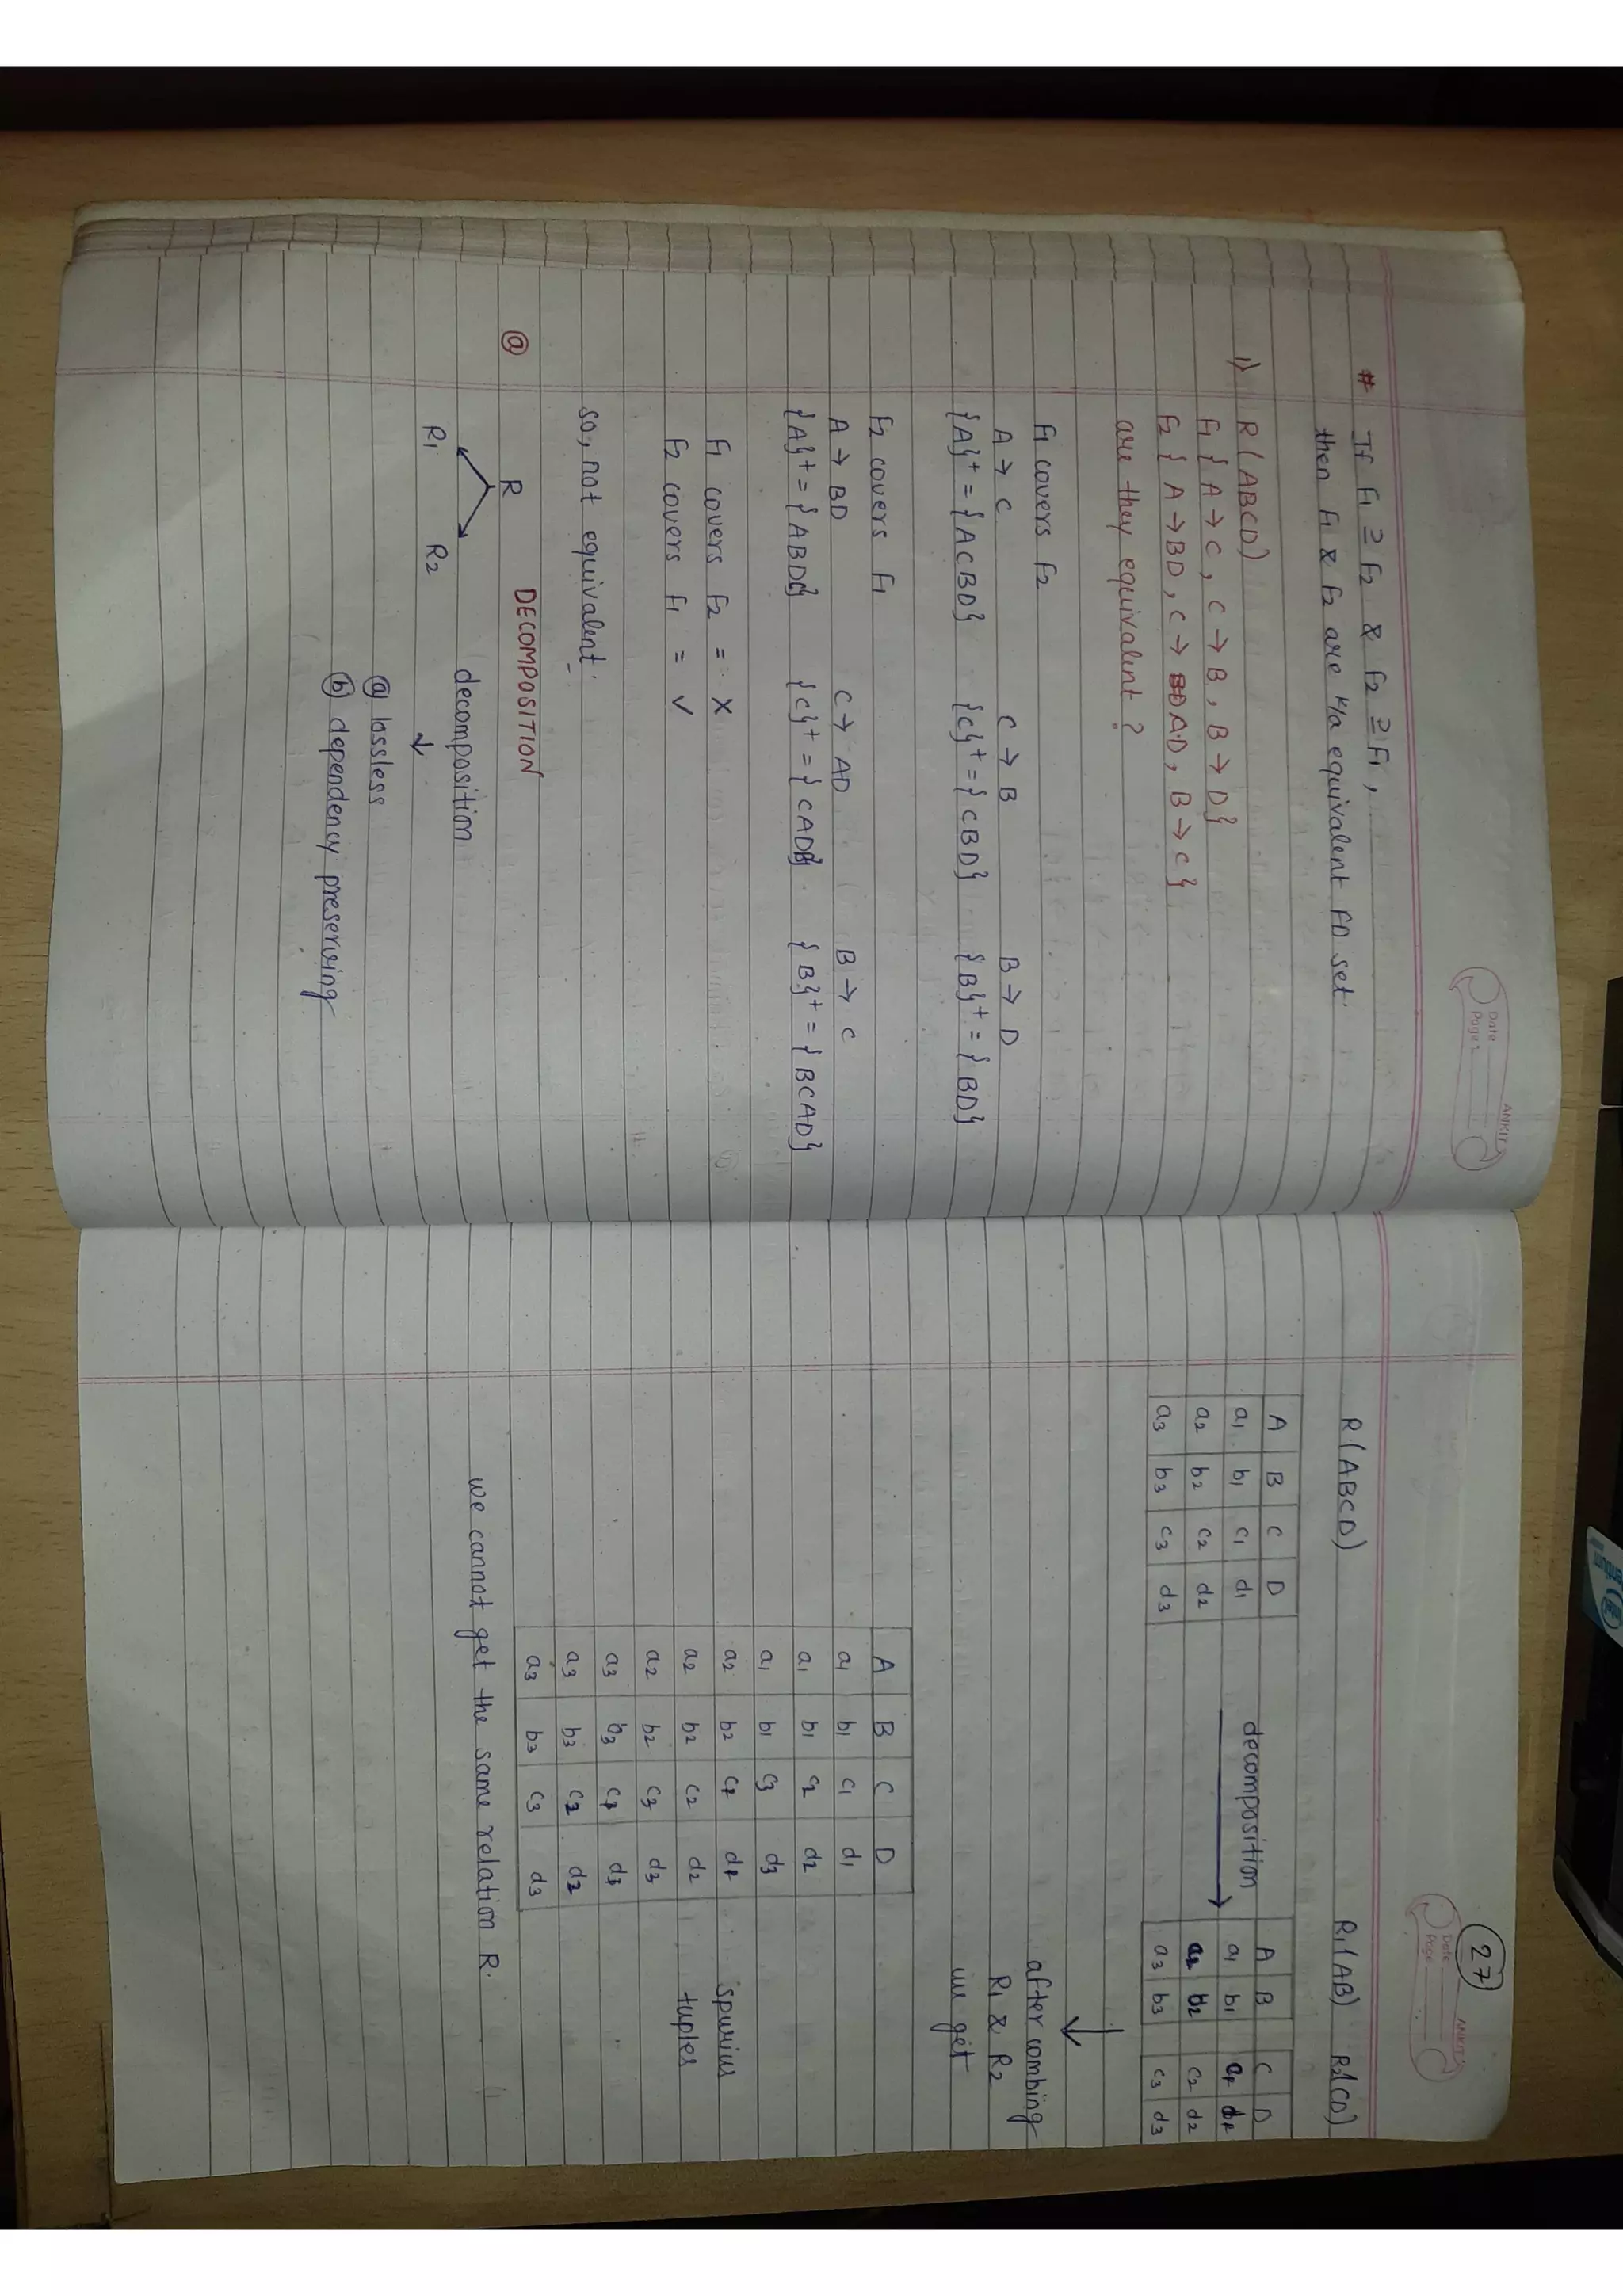 ANKIT
Date
Page
# If F1 ⊇ F2 & F2 ⊇ F1,
then F1 & F2 are k/a equivalent FD set.
1) R(ABCD)
F1 { A → C, C → B, B → D}
F2 { A → BD, C → AD, B → C}
are they equivalent?
F1 covers F2
A → C C → B B → D
{A}+ = {ACBD} {C}+ = {CBD} {B}+ = {BD}
F2 covers F1
A → BD C → AD B → C
{A}+ = {ABDC} {C}+ = {CADB} {B}+ = {BCAD}
F1 covers F2 = X
F2 covers F1 = ✓
so, not equivalent.
@ DECOMPOSITION
R decomposition
R1 R2 ↓
ⓐ lossless
ⓑ dependency preserving
27
ANKIT
Date
Page
R(ABCD) R1(AB) R2(CD)
A B C D decomposition A B C D
a1 b1 c1 d1 → a1 b1 c1 d1
a2 b2 c2 d2 a2 b2 c2 d2
a3 b3 c3 d3 a3 b3 c3 d3
after combing
R1 & R2
we get
A B C D
a1 b1 c1 d1
a1 b1 c2 d2
a1 b1 c3 d3
a2 b2 c1 d1 spurius
a2 b2 c2 d2 tuples
a2 b2 c3 d3
a3 b3 c1 d1
a3 b3 c2 d2
a3 b3 c3 d3
we cannot get the same relation R.